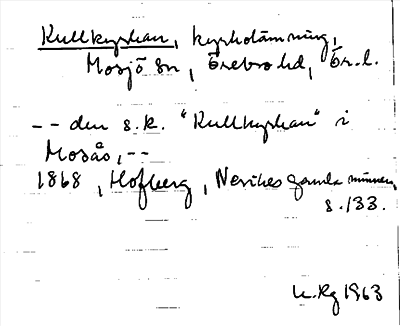 Kullkyrkan, kyrkolämning,
Mosjö sn, Örebro hd, Ör.l.
-- den s.k. "Kullkyrkan" i
Mosås, --
1868, Hofberg, Nerikes gamla minnen,
s.133.
1963